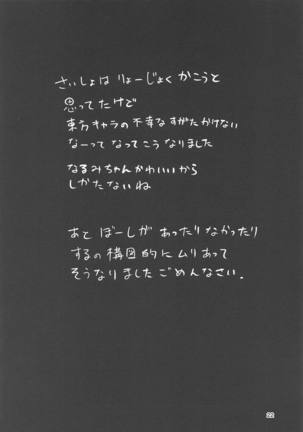 さいしょは りょーじょく かこうと
思ってたけど
東方キャラの不幸なすがたかけない
なーって なってこう なりました
なるみちゃんかわいいから
しかたないね
あと ぼーしが あったり なかったり
するの 構図的に ムリあって
そうなりました ごめんなさい。
22